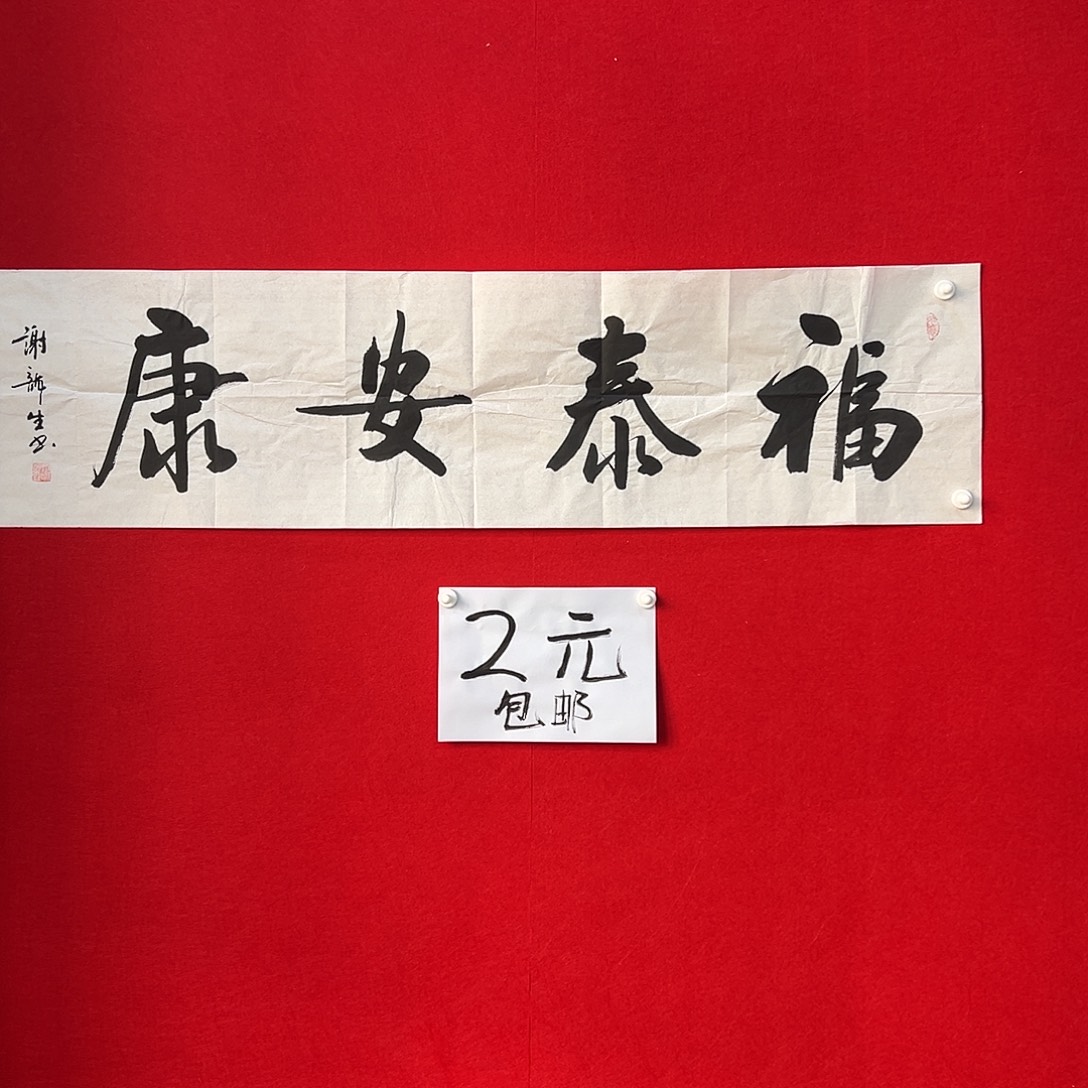 福泰安康
謝新生书
2元
包邮